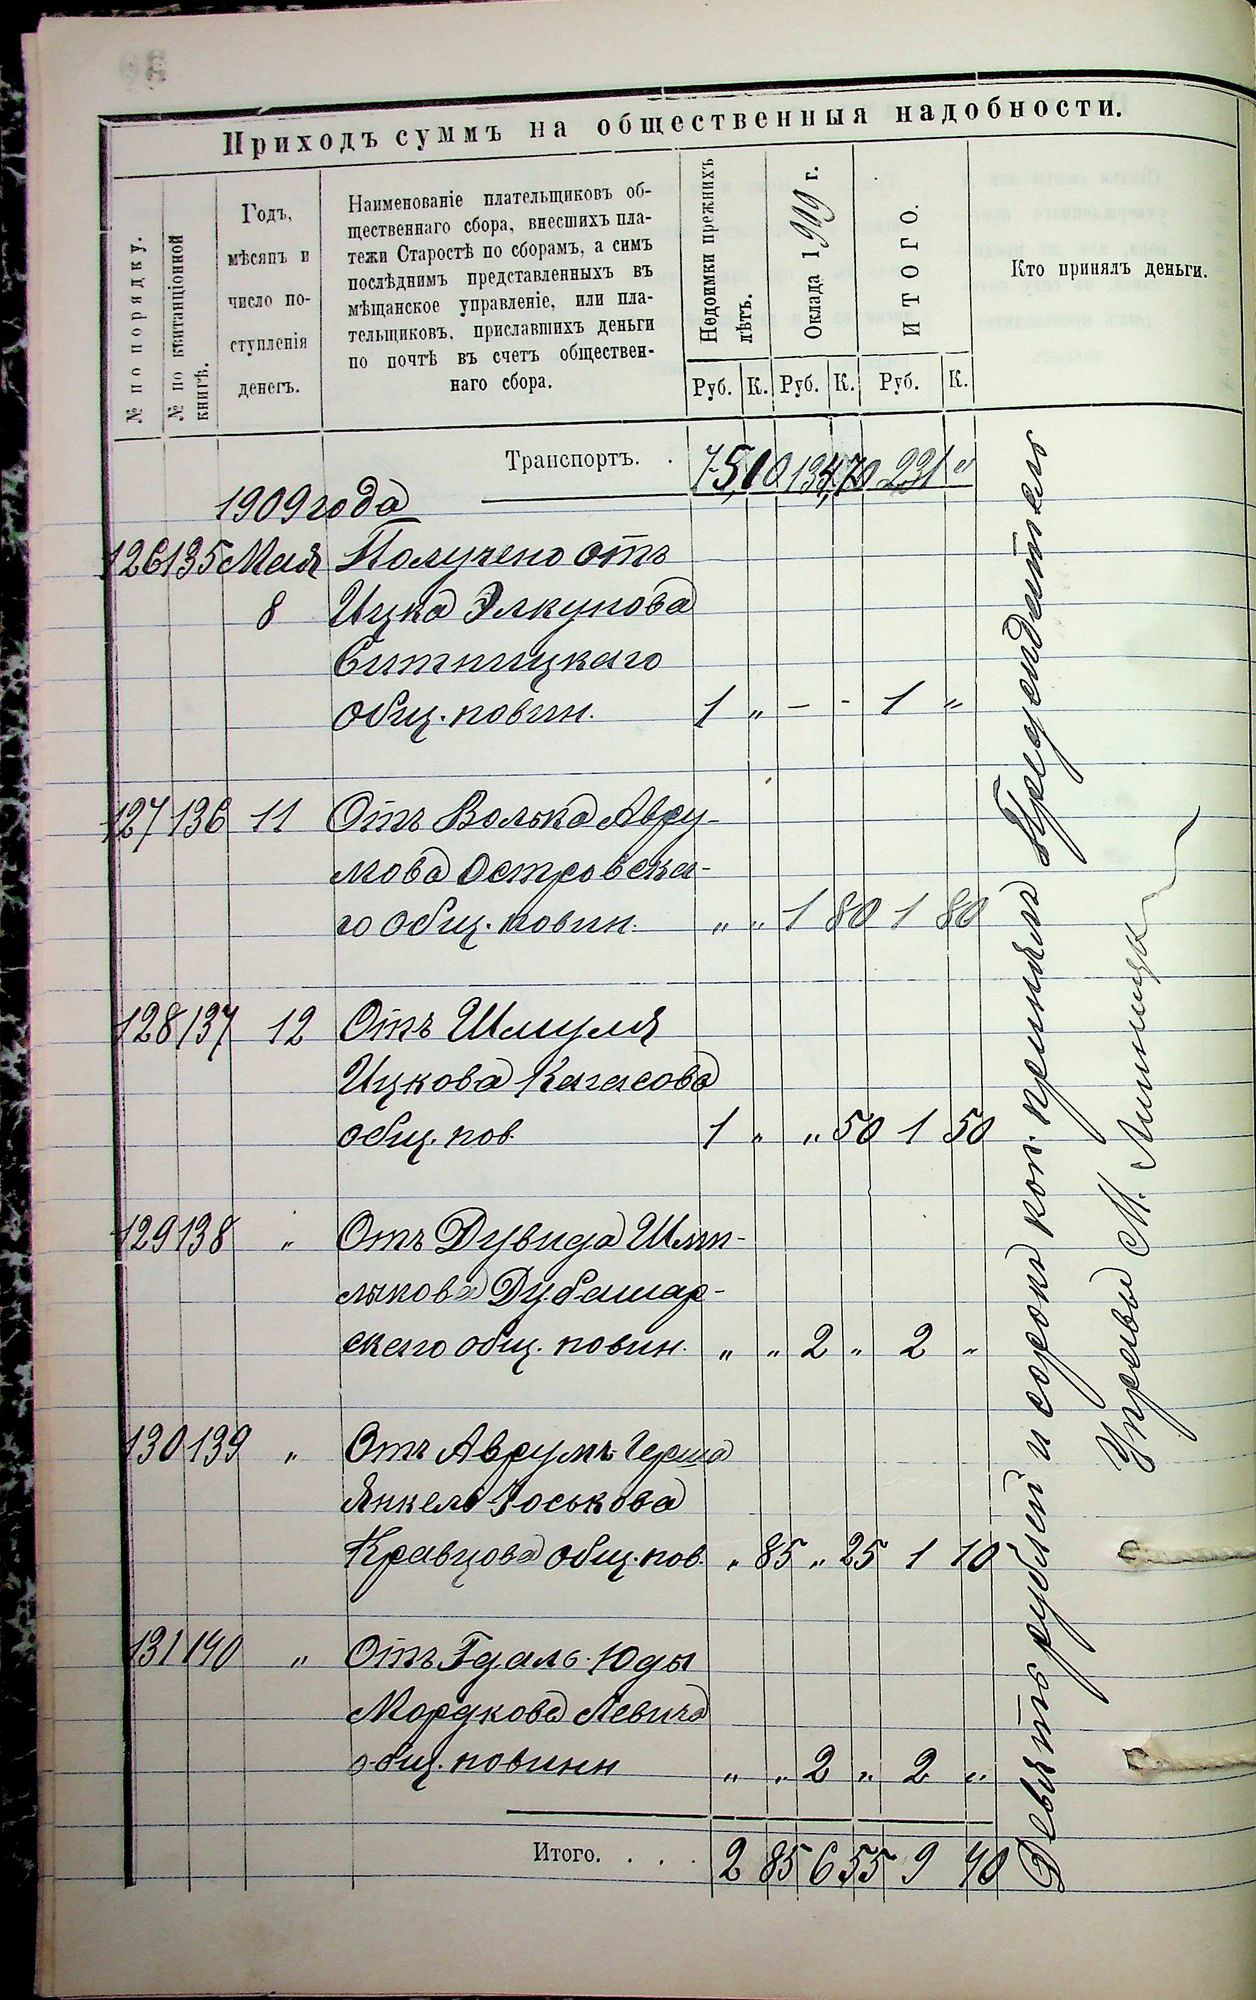 Приходъ суммъ на общественныя надобности.
№ по порядку.
№ по квитанціонной книгѣ.
Годъ,
мѣсяцъ и
число по-
ступленія
денегъ.
Наименованіе плательщиковъ об-
щественнаго сбора, внесшихъ пла-
тежи Старостѣ по сборамъ, а симъ
послѣднимъ представленныхъ въ
мѣщанское управленіе, или пла-
тельщиковъ, приславшихъ деньги
по почтѣ въ счетъ обществен-
наго сбора.
Недоимки прежнихъ
лѣтъ.
Оклада 1909 г.
ИТОГО.
Кто принялъ деньги.
Руб. К. Руб. К. Руб. К.
Транспортъ. . 231 "
1909 года
126 135 Мая Получено отъ
8 Ицка Элкунова
Ситницкаго
общ. повин. 1 " - - 1 "
127 136 11 Отъ Волька Авру-
мова Островска-
го общ. повин. " " 1 80 1 80
128 137 12 Отъ Шмуля
Ицкова Кагасова
общ. пов. 1 " " 50 1 50
129 138 " Отъ Дувида
Дубашар-
скаго общ. повин. " " 2 " 2 "
130 139 " Отъ Аврумъ Герша
Янкель-Іоськова
Кравцова общ. пов. " 85 " 25 1 10
131 140 " Отъ Гдаль-Юды
Мордкова Левича
общ. повинн " " 2 " 2 "
Итого. . . . 2 85 6 55 9 40
Девять рублей и сорокъ коп. принялъ
Управы М.